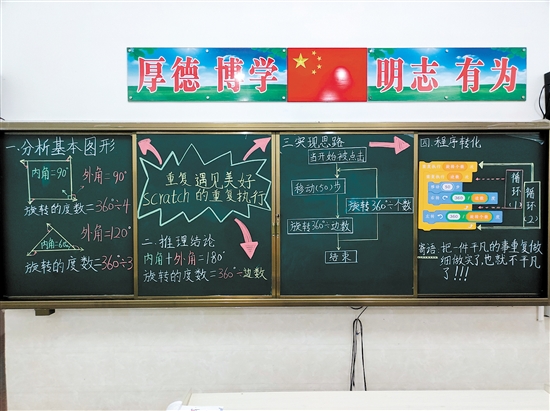 厚德 博学
明志 有为
一.分析基本图形
内角=90°
外角=90°
旋转的度数=360°÷4
内角=60°
外角=120°
旋转的度数=360°÷3
重复遇见美好
Scratch的重复执行
二.推理结论
内角+外角=180°
旋转的度数=360°÷边数
三.实现思路
当开始被点击
移动(50)步
旋转360°÷个数
旋转360°÷边数
结束
四.程序转化
循环(1)
循环(2)
寄语:把一件平凡的事重复做
细做实了,也就不平凡
了!!!